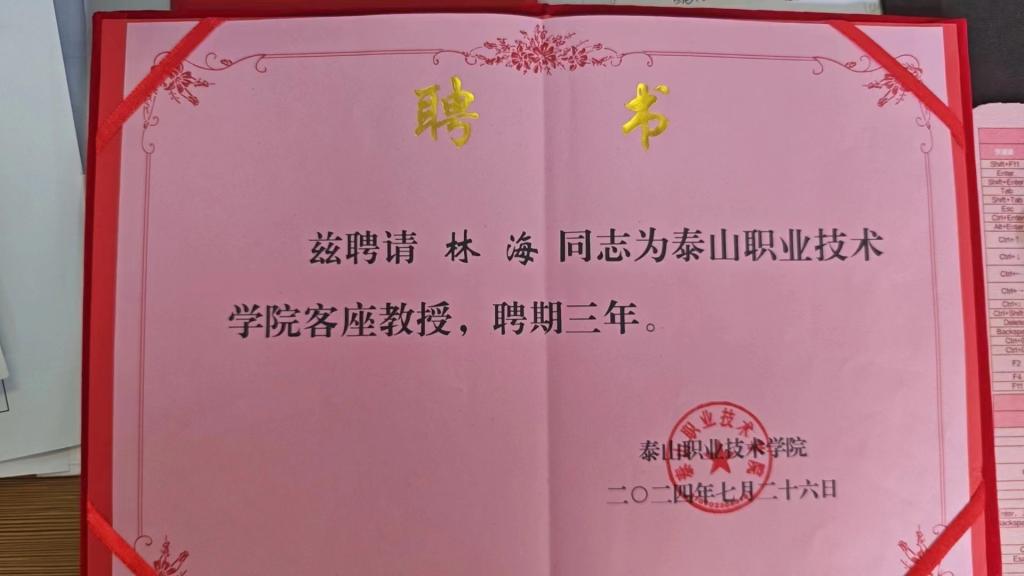 聘 书
兹聘请 林 海 同志为泰山职业技术
学院客座教授，聘期三年。
泰山职业技术学院
二〇二四年七月二十六日
Shift+F11
Enter
Shift+Enter
Tab
Shift+Tab
Esc
Ctrl+Enter
Alt+Enter
Ctrl+↑
Ctrl+↓
Ctrl+←
Ctrl+→
Delete
F2
F4
F11